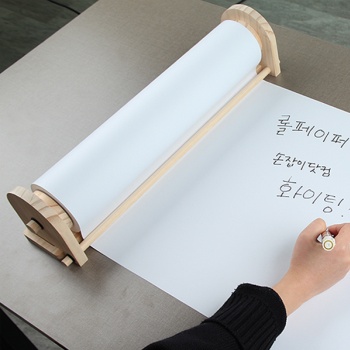 롤페이퍼
손잡이닷컴
화이팅!